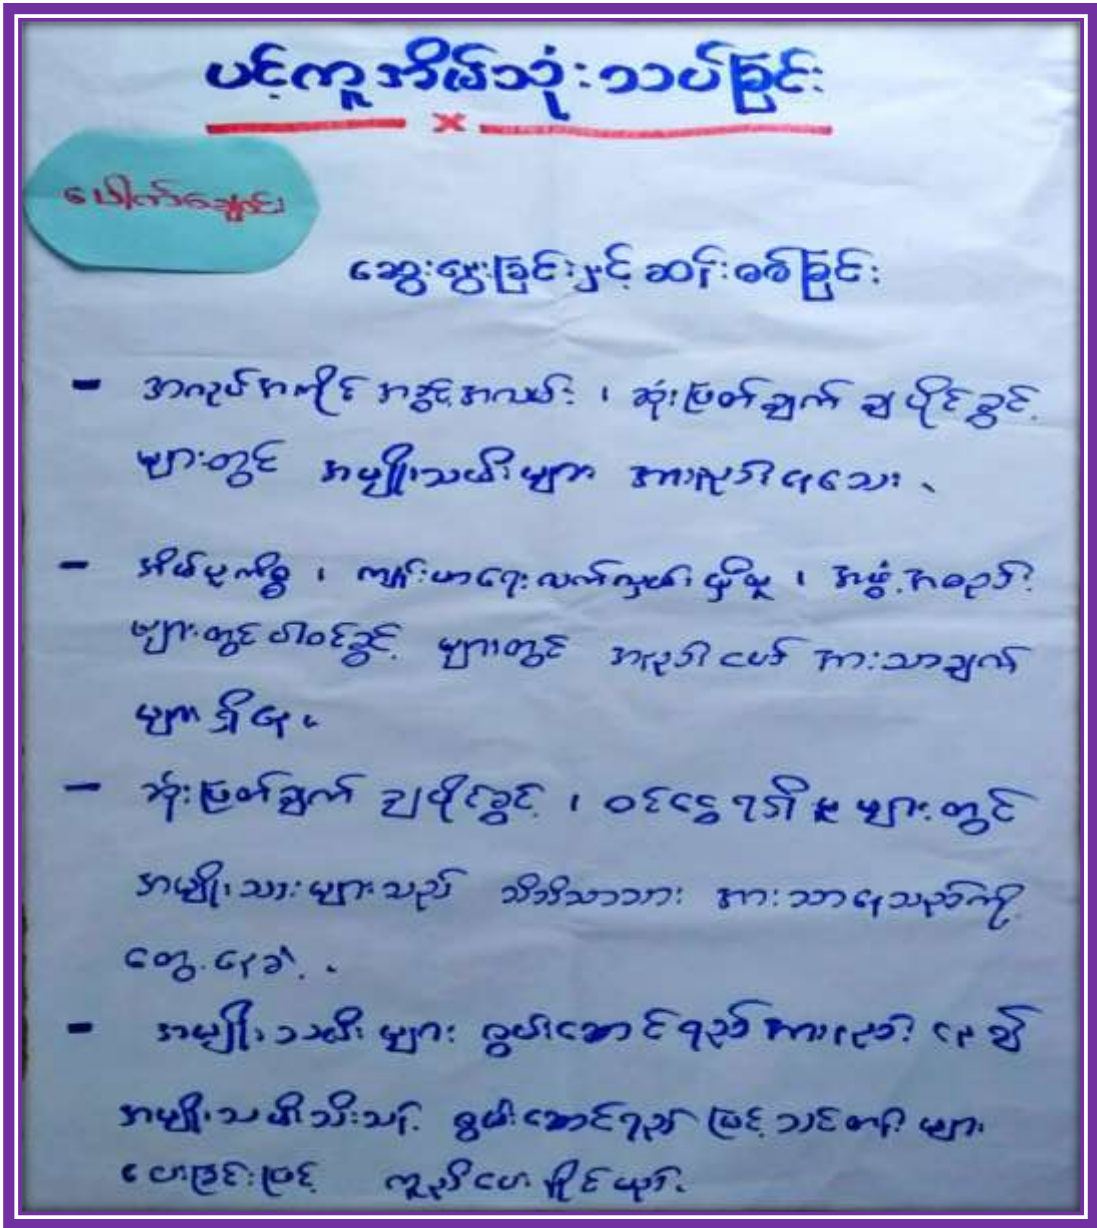 ပင့်ကူအိမ်သုံးသပ်ခြင်း
ပေါက်ချောင်း
ဆွေးနွေးခြင်းနှင့် ဆန်းစစ်ခြင်း
- အလုပ်အကိုင် အခွင့်အလမ်း ၊ ဆုံးဖြတ်ချက် ချပိုင်ခွင့်
များတွင် အမျိုးသမီးများ အားနည်းနေသေး ။
- အိမ်မှုကိစ္စ ၊ ကျန်းမာရေး လက်လှမ်းမှီမှု ၊ အဖွဲ့အစည်း
များတွင်ပါဝင်ခွင့် များတွင် အနည်းငယ် အားသာချက်
များရှိနေ ။
- ဆုံးဖြတ်ချက် ချပိုင်ခွင့် ၊ ဝင်ငွေရရှိမှု များတွင်
အမျိုးသားများသည် သိသိသာသာ အားသာနေသည်ကို
တွေ့နေခဲ့ ။
- အမျိုးသမီးများ စွမ်းဆောင်ရည်အားနည်း၍
အမျိုးသမီးသီးသန့် စွမ်းဆောင်ရည်မြှင့် သင်တန်းများ
ပေးခြင်းဖြင့် ကူညီပေးနိုင်မည်။